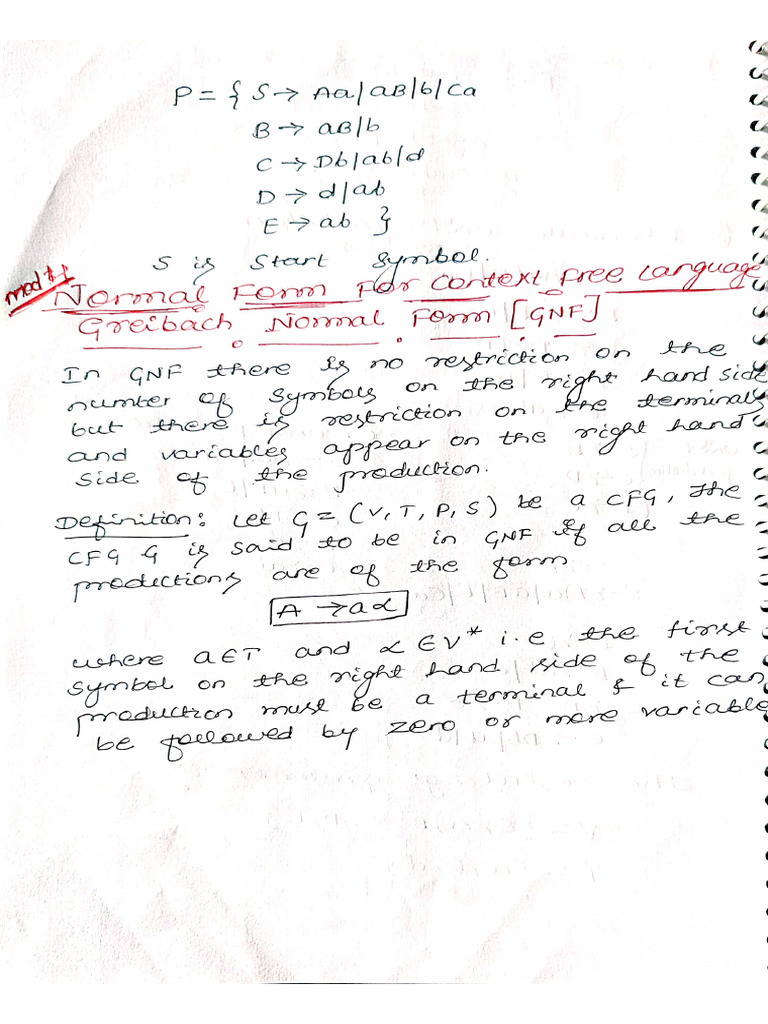 P = { S → Aa/aB/b/Ca
B → aB/b
C → Db/ab/d
D → d/ab
E → ab }
S is start symbol.
Normal Form For Context Free Language
Greibach Normal Form [GNF]
In GNF there is no restriction on the
number of symbols on the right hand side
but there is restriction on the terminals
and variables appear on the right hand
side of the production.
Definition: Let G = (V, T, P, S) be a CFG, The
CFG G is said to be in GNF if all the
productions are of the form
A → aα
where a∈T and α∈V* i.e the first
symbol on the right hand side of the
production must be a terminal & it can
be followed by zero or more variable